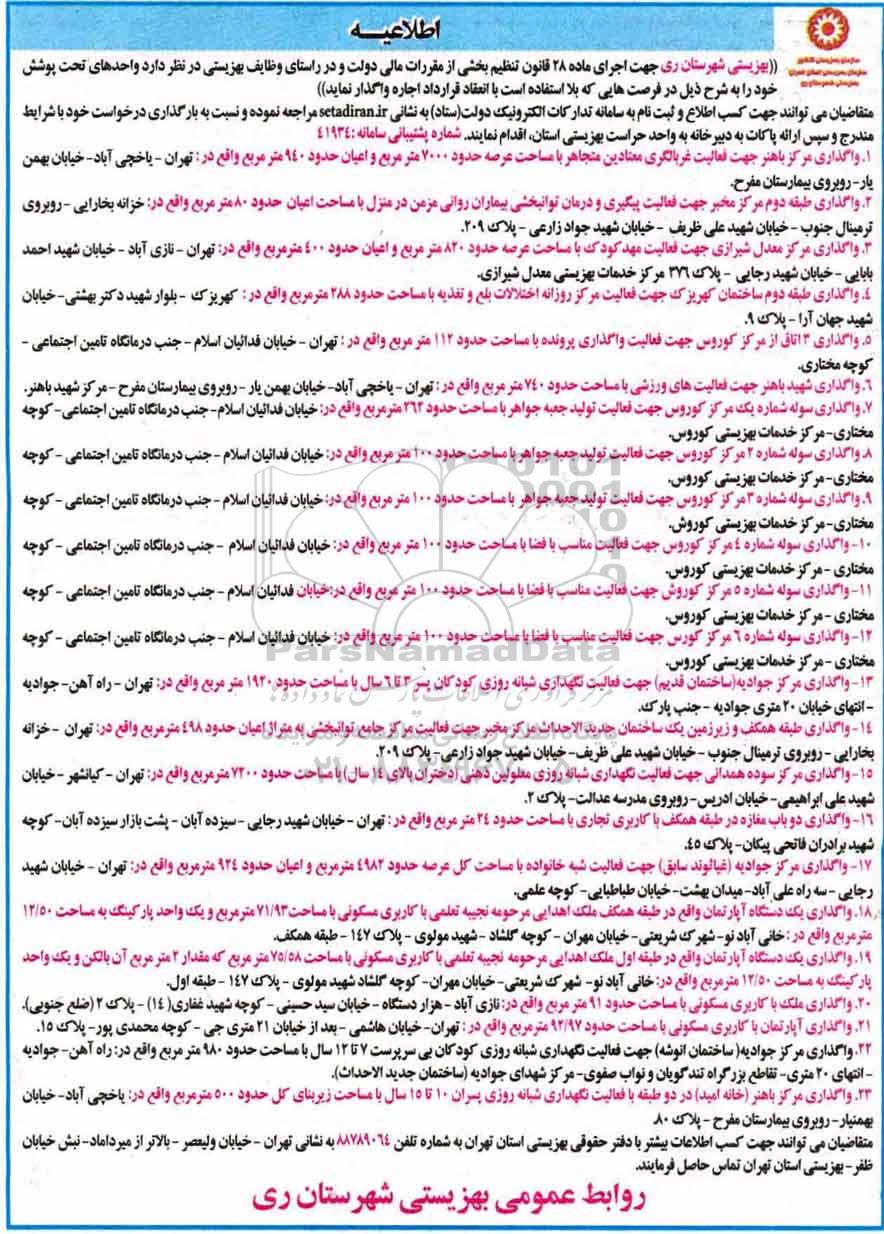 اطلاعیـــه
سازمان بهزیستی کشور
سازمان بهزیستی استان تهران
بهزیستی شهرستان ری
((بهزیستی شهرستان ری جهت اجرای ماده ۲۸ قانون تنظیم بخشی از مقررات مالی دولت و در راستای وظایف بهزیستی در نظر دارد واحدهای تحت پوشش
خود را به شرح ذیل در فرصت هایی که بلا استفاده است با انعقاد قرارداد اجاره واگذار نماید))
متقاضیان می توانند جهت کسب اطلاع و ثبت نام به سامانه تدارکات الکترونیک دولت(ستاد) به نشانی setadiran.ir مراجعه نموده و نسبت به بارگذاری درخواست خود با شرایط
مندرج و سپس ارائه پاکات به دبیرخانه به واحد حراست بهزیستی استان، اقدام نمایند. شماره پشتیبانی سامانه : ۴۱۹۳۴
۱. واگذاری مرکز باهنر جهت فعالیت غربالگری معتادین متجاهر با مساحت عرصه حدود ۷۰۰۰ متر مربع و اعیان حدود ۹۴۰ متر مربع واقع در : تهران - یاخچی آباد- خیابان بهمن
یار- روبروی بیمارستان مفرح.
۲. واگذاری طبقه دوم مرکز مخبر جهت فعالیت پیگیری و درمان توانبخشی بیماران روانی مزمن در منزل با مساحت اعیان حدود ۸۰ متر مربع واقع در: خزانه بخارایی - روبروی
ترمینال جنوب - خیابان شهید علی ظریف - خیابان شهید جواد زارعی - پلاک ۲۰۹.
۳. واگذاری مرکز معدل شیرازی جهت فعالیت مهدکودک با مساحت عرصه حدود ۸۲۰ متر مربع و اعیان حدود ۴۰۰ مترمربع واقع در: تهران - نازی آباد - خیابان شهید احمد
بابایی - خیابان شهید رجایی - پلاک ۳۷۶ مرکز خدمات بهزیستی معدل شیرازی.
۴. واگذاری طبقه دوم ساختمان کهریزک جهت فعالیت مرکز روزانه اختلالات بلع و تغذیه با مساحت حدود ۲۸۸ مترمربع واقع در : کهریزک - بلوار شهید دکتر بهشتی- خیابان
شهید جهان آرا - پلاک ۹.
۵. واگذاری ۳ اتاق از مرکز کوروس جهت فعالیت واگذاری پرونده با مساحت حدود ۱۱۲ متر مربع واقع در : تهران - خیابان فدائیان اسلام - جنب درمانگاه تامین اجتماعی -
کوچه مختاری.
۶. واگذاری شهید باهنر جهت فعالیت های ورزشی با مساحت حدود ۷۴۰ متر مربع واقع در : تهران - یاخچی آباد- خیابان بهمن یار - روبروی بیمارستان مفرح - مرکز شهید باهنر.
۷. واگذاری سوله شماره یک مرکز کوروس جهت فعالیت تولید جعبه جواهر با مساحت حدود ۲۶۲ مترمربع واقع در: خیابان فدائیان اسلام- جنب درمانگاه تامین اجتماعی- کوچه
مختاری- مرکز خدمات بهزیستی کوروس.
۸. واگذاری سوله شماره ۲ مرکز کوروس جهت فعالیت تولید جعبه جواهر با مساحت حدود ۱۰۰ متر مربع واقع در: خیابان فدائیان اسلام - جنب درمانگاه تامین اجتماعی - کوچه
مختاری- مرکز خدمات بهزیستی کوروس.
۹. واگذاری سوله شماره ۳ مرکز کوروس جهت فعالیت تولید جعبه جواهر با مساحت حدود ۱۰۰ متر مربع واقع در: خیابان فدائیان اسلام - جنب درمانگاه تامین اجتماعی - کوچه
مختاری- مرکز خدمات بهزیستی کوروش.
۱۰- واگذاری سوله شماره ۴ مرکز کوروس جهت فعالیت مناسب با فضا با مساحت حدود ۱۰۰ متر مربع واقع در: خیابان فدائیان اسلام - جنب درمانگاه تامین اجتماعی - کوچه
مختاری - مرکز خدمات بهزیستی کوروس.
۱۱- واگذاری سوله شماره ۵ مرکز کوروش جهت فعالیت مناسب با فضا با مساحت حدود ۱۰۰ متر مربع واقع در:خیابان فدائیان اسلام - جنب درمانگاه تامین اجتماعی - کوچه
مختاری - مرکز خدمات بهزیستی کوروس.
۱۲- واگذاری سوله شماره ۶ مرکز کورس جهت فعالیت مناسب با فضا با مساحت حدود ۱۰۰ متر مربع واقع در: خیابان فدائیان اسلام - جنب درمانگاه تامین اجتماعی - کوچه
مختاری - مرکز خدمات بهزیستی کوروس.
ParsNamadData
۱۳- واگذاری مرکز جوادیه(ساختمان قدیم) جهت فعالیت نگهداری شبانه روزی کودکان پسر ۳ تا ۶ سال با مساحت حدود ۱۹۲۰ متر مربع واقع در: تهران - راه آهن- جوادیه
-انتهای خیابان ۲۰ متری جوادیه - جنب پارک.
۱۴- واگذاری طبقه همکف و زیرزمین یک ساختمان جدید الاحداث مرکز مخبر جهت فعالیت مرکز جامع توانبخشی به متراژ اعیان حدود ۴۹۸ مترمربع واقع در: تهران - خزانه
بخارایی - روبروی ترمینال جنوب - خیابان شهید علی ظریف- خیابان شهید جواد زارعی- پلاک ۲۰۹.
۱۵- واگذاری مرکز سوده همدانی جهت فعالیت نگهداری شبانه روزی معلولین ذهنی (دختران بالای ۱۴ سال) با مساحت حدود ۷۲۰۰ مترمربع واقع در: تهران - کیانشهر - خیابان
شهید علی ابراهیمی- خیابان ادریس- روبروی مدرسه عدالت- پلاک ۲.
۱۶- واگذاری دو باب مغازه در طبقه همکف با کاربری تجاری با مساحت حدود ۲۴ متر مربع واقع در : تهران - خیابان شهید رجایی - سیزده آبان - پشت بازار سیزده آبان- کوچه
شهید برادران فاتحی پیکان- پلاک ۴۵.
۱۷- واگذاری مرکز جوادیه (غیاثوند سابق) جهت فعالیت شبه خانواده با مساحت کل عرصه حدود ۴۹۸۲ مترمربع و اعیان حدود ۹۲۴ مترمربع واقع در: تهران - خیابان شهید
رجایی - سه راه علی آباد- میدان بهشت- خیابان طباطبایی- کوچه علمی.
۱۸. واگذاری یک دستگاه آپارتمان واقع در طبقه همکف ملک اهدایی مرحومه نجیبه تعلمی با کاربری مسکونی با مساحت۷۱/۹۳ مترمربع و یک واحد پارکینگ به مساحت ۱۲/۵۰
مترمربع واقع در : خانی آباد نو- شهرک شریعتی- خیابان مهران - کوچه گلشاد -شهید مولوی - پلاک ۱۴۷ - طبقه همکف.
۱۹. واگذاری یک دستگاه آپارتمان واقع در طبقه اول ملک اهدایی مرحومه نجیبه تعلمی با کاربری مسکونی با مساحت ۷۵/۵۸ متر مربع که مقدار ۲ متر مربع آن بالکن و یک واحد
پارکینگ به مساحت ۱۲/۵۰ مترمربع واقع در: خانی آباد نو- شهرک شریعتی- خیابان مهران- کوچه گلشاد شهید مولوی - پلاک ۱۴۷ - طبقه اول.
۲۰. واگذاری ملک با کاربری مسکونی با مساحت حدود ۹۱ متر مربع واقع در: نازی آباد - هزار دستگاه - خیابان سید حسینی - کوچه شهید غفاری( ۱۴) - پلاک ۲ (ضلع جنوبی).
۲۱. واگذاری آپارتمان با کاربری مسکونی با مساحت حدود ۹۲/۹۷ مترمربع واقع در : تهران- خیابان هاشمی - بعد از خیابان ۲۱ متری جی - کوچه محمدی پور- پلاک ۱۵.
۲۲. واگذاری مرکز جوادیه( ساختمان انوشه) جهت فعالیت نگهداری شبانه روزی کودکان بی سرپرست ۷ تا ۱۲ سال با مساحت حدود ۹۸۰ متر مربع واقع در: راه آهن- جوادیه
-انتهای ۲۰ متری- تقاطع بزرگراه تندگویان و نواب صفوی- مرکز شهدای جوادیه (ساختمان جدید الاحداث).
۲۳. واگذاری مرکز باهنر (خانه امید) در دو طبقه با فعالیت نگهداری شبانه روزی پسران ۱۰ تا ۱۵ سال با مساحت زیربنای کل حدود ۵۰۰ مترمربع واقع در: یاخچی آباد- خیابان
بهمنیار- روبروی بیمارستان مفرح - پلاک ۸۰.
متقاضیان می توانند جهت کسب اطلاعات بیشتر با دفتر حقوقی بهزیستی استان تهران به شماره تلفن ۸۸۷۸۹۰۶۴ به نشانی تهران - خیابان ولیعصر - بالاتر از میرداماد- نبش خیابان
ظفر- بهزیستی استان تهران تماس حاصل فرمایند.
روابط عمومی بهزیستی شهرستان ری